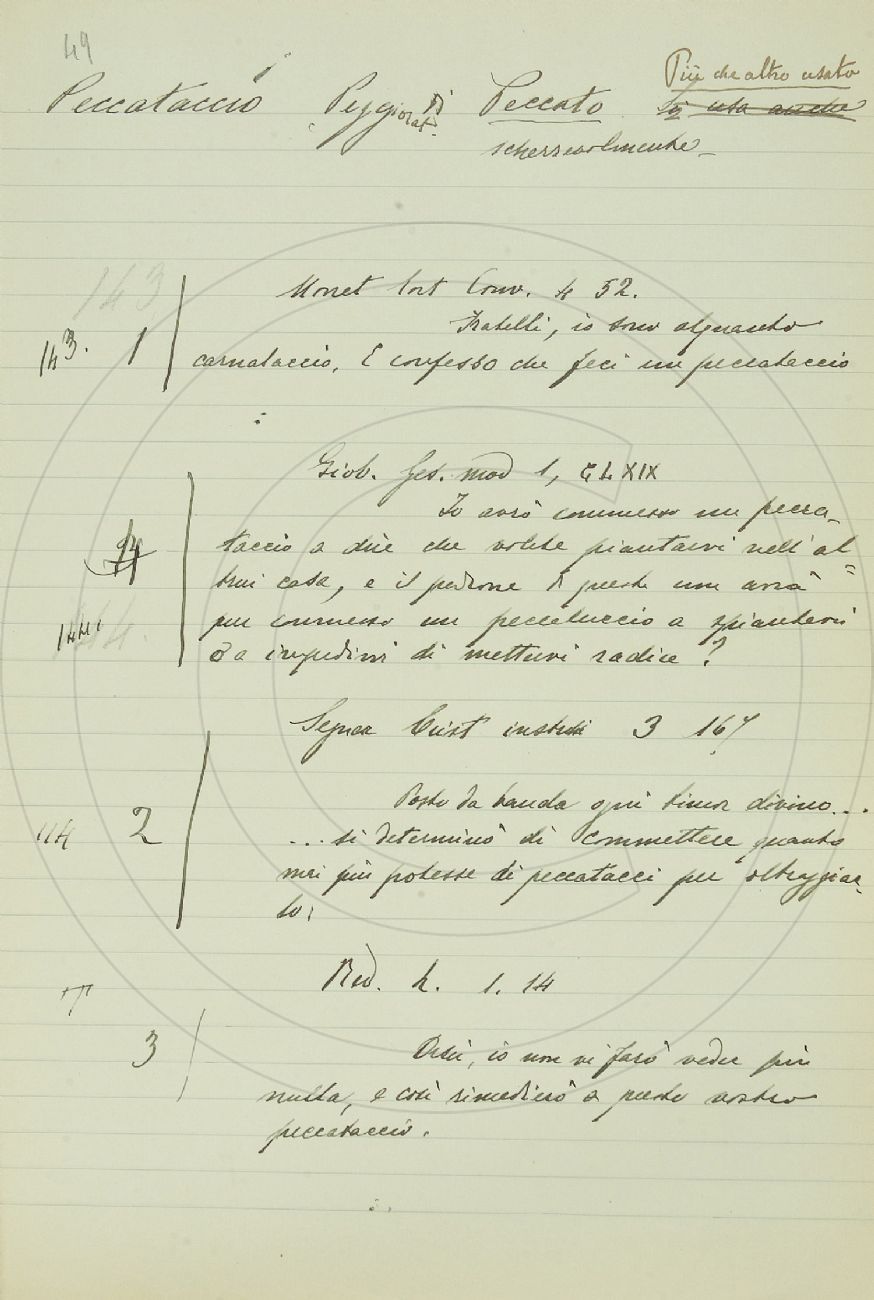 49
Peccataccio Peggiorat. di Peccato Più che altro usato
Si usa anche
scherzevolmente
143
Monet Cort Conv. 4 52.
Fratelli, io sono alquanto
143. 1 carnataccio, E confesso che feci un peccataccio
Giob. Ges. mod 1, CLXIX
Io avrò commesso un pecca-
4 taccio a dire che volete piantarvi nell'al=
trui casa, e il padrone di queste non avrà
144. pur commesso un peccatuccio a spiantarvi
o a impedirvi di mettervi radice?
Segner Crist instr 3 167
Posto da banda ogni timor divino...
114 2 ... si determinò di commettere quanto
mai più potesse di peccatacci per oltraggiar-
lo;
Red. L. 1. 14
T
3 Orsù, io non vi farò veder più
nulla, e così rimedierò a questo vostro
peccataccio.